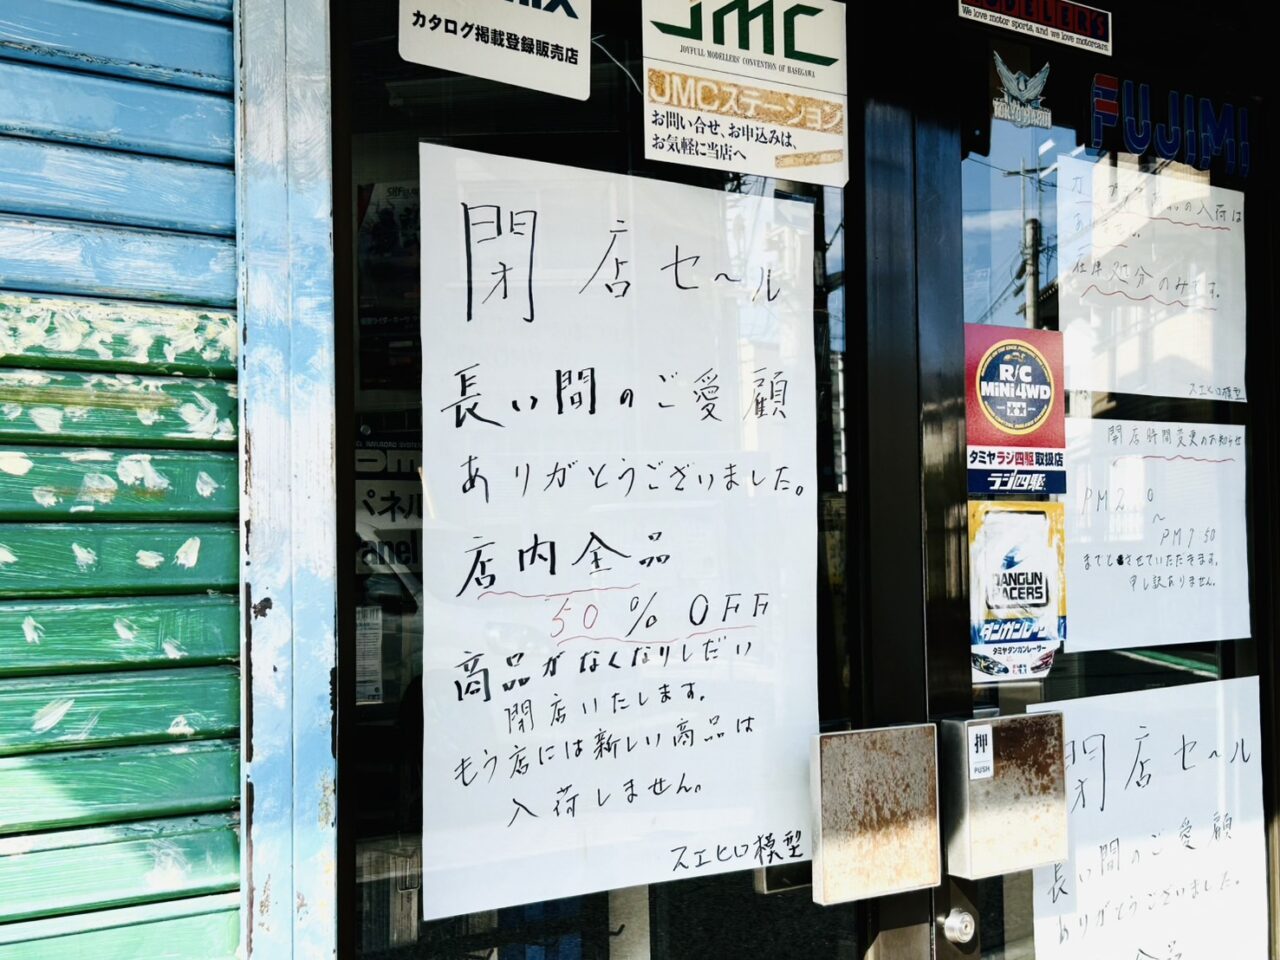 カタログ掲載登録販売店
JMC
JOYFULL MODELLERS' CONVENTION OF HASEGAWA
JMCステーション
お問い合せ、お申込みは、
お気軽に当店へ
閉店セール
長い間のご愛顧
ありがとうございました。
店内全品
50% OFF
商品がなくなりしだい
閉店いたします。
もう店には新しい商品は
入荷しません。
スエヒロ模型
パネル
anel
We love motor sports, and we love motorcars.
TOKYO MARUI
FUJIMI
の入荷は
在庫処分のみです。
スエヒロ模型
R/C
MiNi4WD
タミヤラジ四駆取扱店
ラジ四駆
DANGUN
RACERS
ダンガンレーサー
タミヤダンガンレーサー
開店時間変更のお知らせ
PM
～
PM7 50
までとさせていただきます。
申し訳ありません。
押
PUSH
閉店セール
長い間のご愛顧
ありがとうございました。
全品